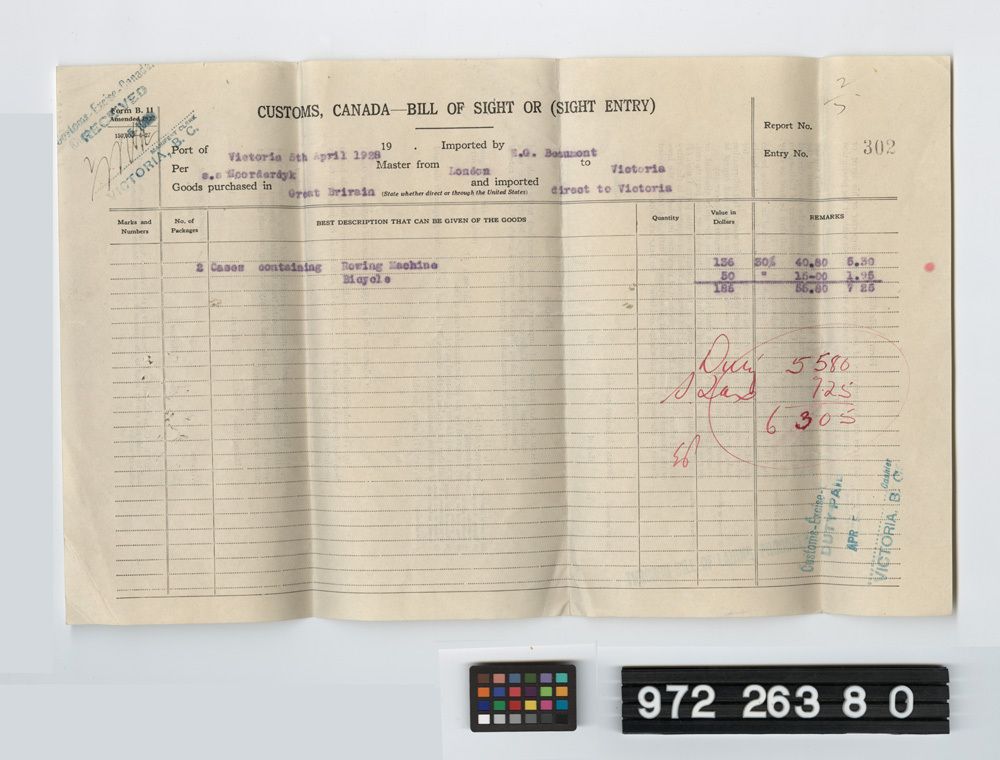 Customs-Excise-Canada
RECEIVED
MANIFEST CLERK
VICTORIA, B. C.
Form B. 11
Amended 1927
CUSTOMS, CANADA—BILL OF SIGHT OR (SIGHT ENTRY)
2/5
Report No.
Entry No. 302
Port of Victoria 5th April 1928 19 . Imported by E.G. Beaumont
Per s.s Noorderdyk Master from London to Victoria
Goods purchased in Great Britain (State whether direct or through the United States) and imported direct to Victoria
Marks and Numbers No. of Packages BEST DESCRIPTION THAT CAN BE GIVEN OF THE GOODS Quantity Value in Dollars REMARKS
2 Cases containing Rowing Machine 136 30% 40.80 5.30
Bicycle 50 " 15-00 1.95
186 55.80 7 25
Duty 5580
S Tax 725
6305
Customs-Excise-
DUTY PAID
APR
Cashier
VICTORIA, B. C.
972 263 8 0